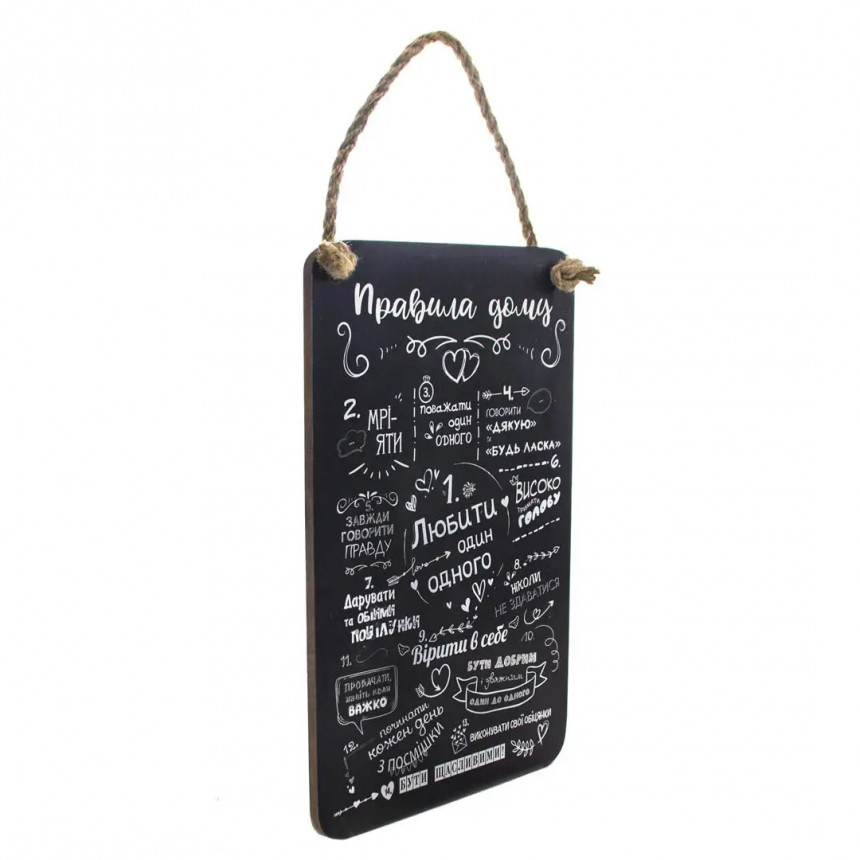 Правила дому
2.
МРІ-
ЯТИ
3.
поважати
один
одного
4.
ГОВОРИТИ
«ДЯКУЮ»
та
«БУДЬ ЛАСКА»
1.
Любити
один
одного
5.
ЗАВЖДИ
ГОВОРИТИ
ПРАВДУ
6.
ВИСОКО
тримати
ГОЛОВУ
7.
Дарувати
та обійми
поцілунки
love
8.
НІКОЛИ
НЕ ЗДАВАТИСЯ
9.
Вірити в себе
10.
БУТИ ДОБРИМ
і уважним
ОДИН ДО ОДНОГО
11.
ПРОБАЧАТИ,
навіть коли
ВАЖКО
12.
починати
кожен день
З ПОСМІШКИ
13.
ВИКОНУВАТИ СВОЇ ОБІЦЯНКИ
БУТИ ЩАСЛИВИМИ!